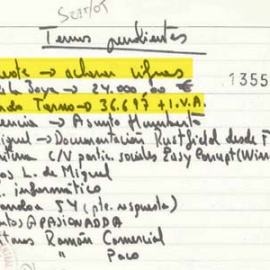 Sept/05
Temas pendientes
→ aclarar cifras
Joya → 24.000,00 €
1355
Tarno → 36.697 + I.V.A.
encia → Asunto Humberto
iguel → Documentación Rustfield desde F
C/V partic. sociales Easy Corrupt (Win
os L. de Miguel
informático
54 (pte. respuesta)
ntos APASIONADDA
Ramón Comercial
" Paco